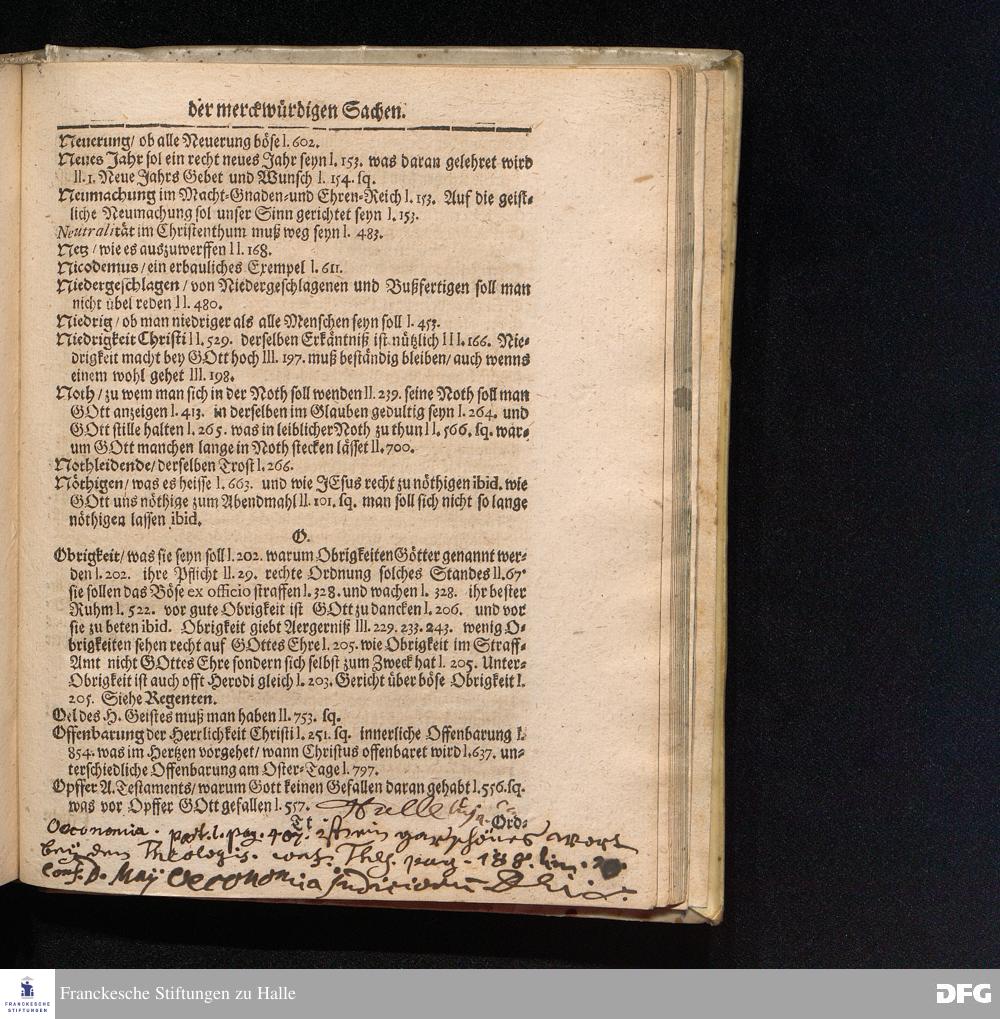 der merckwürdigen Sachen.
Neuerung/ ob alle Neuerung böse l. 602.
Neues Jahr sol ein recht neues Jahr seyn l. 153. was daran gelehret wird
ll. 1. Neue Jahrs Gebet und Wunsch l. 154. sq.
Neumachung im Macht-Gnaden-und Ehren-Reich l. 153. Auf die geist-
liche Neumachung sol unser Sinn gerichtet seyn l. 153.
Neutralität im Christenthum muß weg seyn l. 483.
Netz / wie es auszuwerffen ll. 168.
Nicodemus / ein erbauliches Exempel l. 611.
Niedergeschlagen / von Niedergeschlagenen und Bußfertigen soll man
nicht übel reden ll. 480.
Niedrig / ob man niedriger als alle Menschen seyn soll l. 453.
Niedrigkeit Christi ll. 529. derselben Erkäntniß ist nützlich lll. 166. Nie-
drigkeit macht bey GOtt hoch lll. 197. muß beständig bleiben / auch wenns
einem wohl gehet lll. 198.
Noth / zu wem man sich in der Noth soll wenden ll. 239. seine Noth soll man
GOtt anzeigen l. 413. in derselben im Glauben gedultig seyn l. 264. und
GOtt stille halten l. 265. was in leiblicher Noth zu thun ll. 566. sq. war-
um GOtt manchen lange in Noth stecken lässet ll. 700.
Nothleidende / derselben Trost l. 266.
Nöthigen / was es heisse l. 663. und wie JEsus recht zu nöthigen ibid. wie
GOtt uns nöthige zum Abendmahl ll. 101. sq. man soll sich nicht so lange
nöthigen lassen ibid.
O.
Obrigkeit / was sie seyn soll l. 202. warum Obrigkeiten Götter genannt wer-
den l. 202. ihre Pflicht ll. 29. rechte Ordnung solches Standes ll. 67.
sie sollen das Böse ex officio straffen l. 328. und wachen l. 328. ihr bester
Ruhm l. 522. vor gute Obrigkeit ist GOtt zu dancken l. 206. und vor
sie zu beten ibid. Obrigkeit giebt Aergerniß lll. 229. 233. 243. wenig O-
brigkeiten sehen recht auf GOttes Ehre l. 205. wie Obrigkeit im Straff-
Amt nicht GOttes Ehre sondern sich selbst zum Zweck hat l. 205. Unter-
Obrigkeit ist auch offt Herodi gleich l. 203. Gericht über böse Obrigkeit l.
205. Siehe Regenten.
Oel des H. Geistes muß man haben ll. 753. sq.
Offenbarung der Herrlichkeit Christi l. 251. sq. innerliche Offenbarung l.
854. was im Hertzen vorgehet / wann Christus offenbaret wird l. 637. un-
terschiedliche Offenbarung am Oster-Tage l. 797.
Opffer A. Testaments / warum Gott keinen Gefallen daran gehabt l. 556. sq.
was vor Opffer GOtt gefallen l. 557.
Tt Ord-
Oeconomia. pag. 407. ist ein gar schönes wort
bey den Theologis. Thes. pag. 188. lin.
Conf. D. Maij Oeconomia judiciorum
Franckesche Stiftungen zu Halle
FRANCKESCHE
STIFTUNGEN
DFG